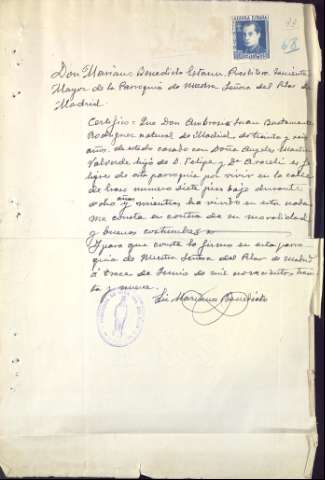 68
Don Mariano Benedicto Presbítero Teniente
Mayor de la Parroquia de Nuestra Señora del Pilar de
Madrid.
Certifico: Que Don Ambrosio Juan Bustamante
Rodríguez natural de Madrid, de treinta y seis
años, de estado casado con Doña Angeles Martín
Valverde, hijo de D. Felipe y Dª Araceli es fe-
ligres de esta parroquia por vivir en la calle
de numero siete piso bajo durante
ocho años y mientras ha vivido en esta nada
me consta en contra de su moralidad
y buenas costumbres
Y para que conste lo firmo en esta parro-
quia de Nuestra Señora del Pilar de Madrid
a once de Junio de mil novecientos trein
ta y nueve.
Mariano Benedicto